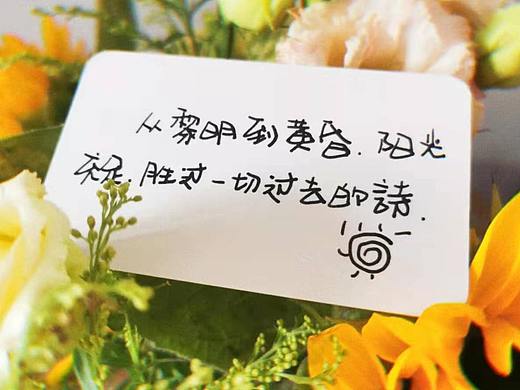 从黎明到黄昏.阳光
充足.胜过一切过去的詩.